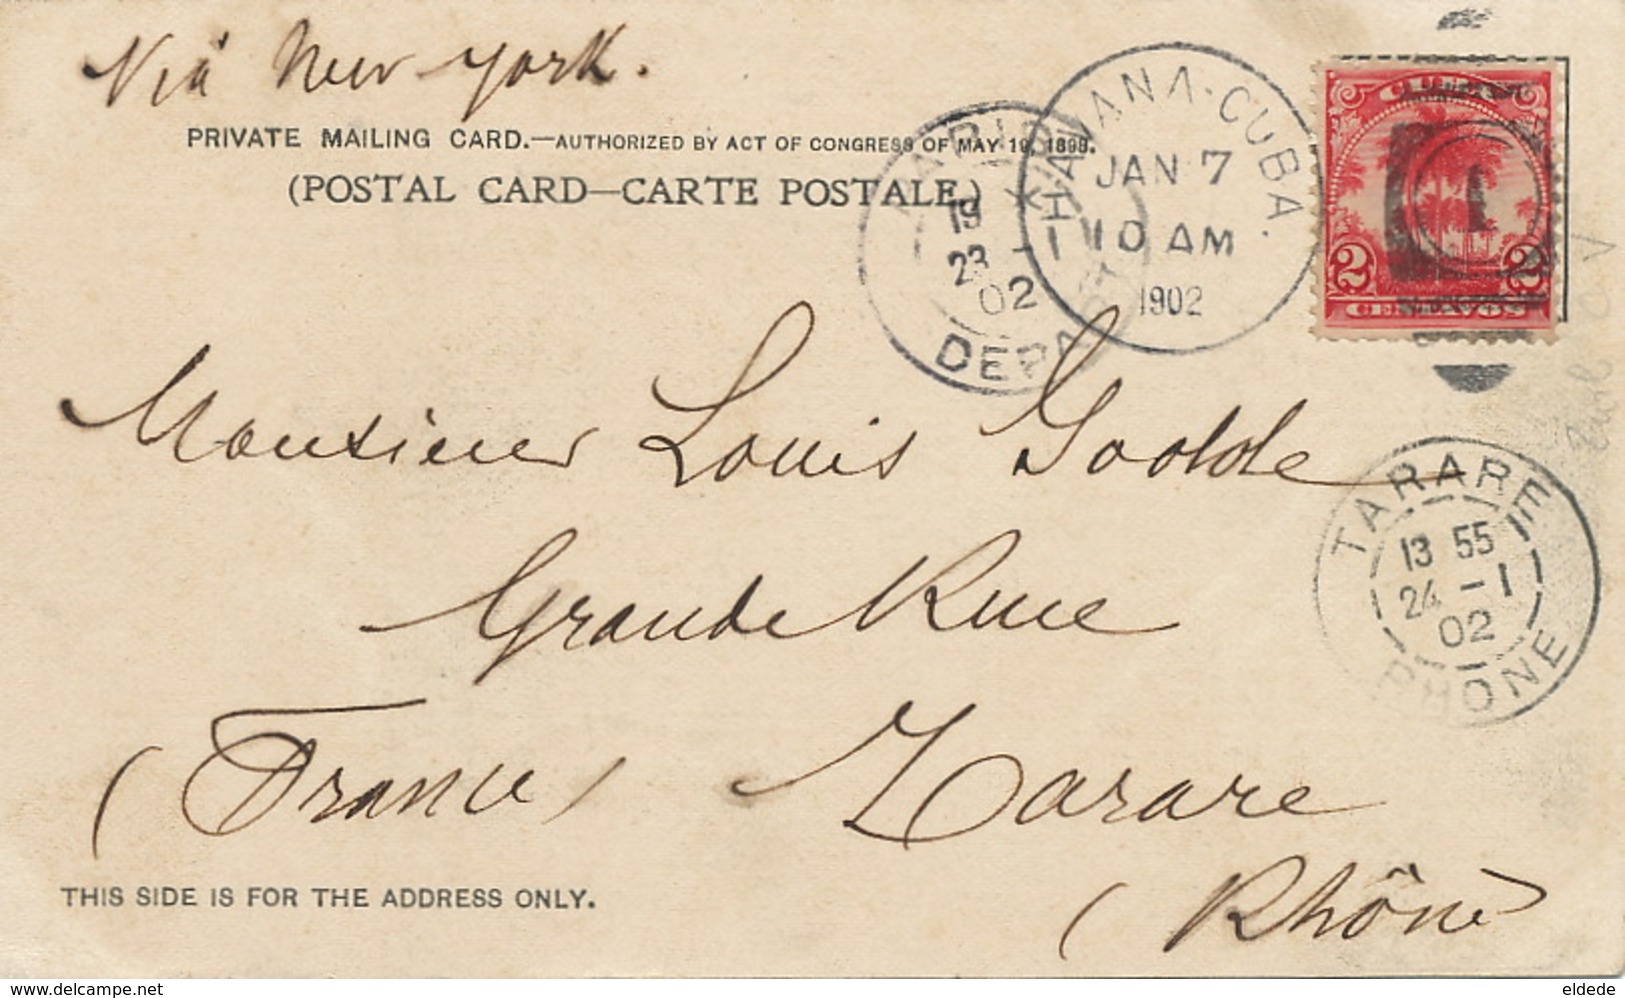 Via New York.
PRIVATE MAILING CARD.—AUTHORIZED BY ACT OF CONGRESS OF MAY 19, 1898.
(POSTAL CARD—CARTE POSTALE.)
HAVANA·CUBA.
JAN 7
10 AM
1902
PARIS
19
23 - 1
02
DEPART
CUBA
1
2 2
CENTAVOS
Monsieur Louis Godde
TARARE
13 55
24 - 1
02
RHONE
Grande Rue
(France) Tarare
(Rhône)
THIS SIDE IS FOR THE ADDRESS ONLY.
www.delcampe.net
eldede